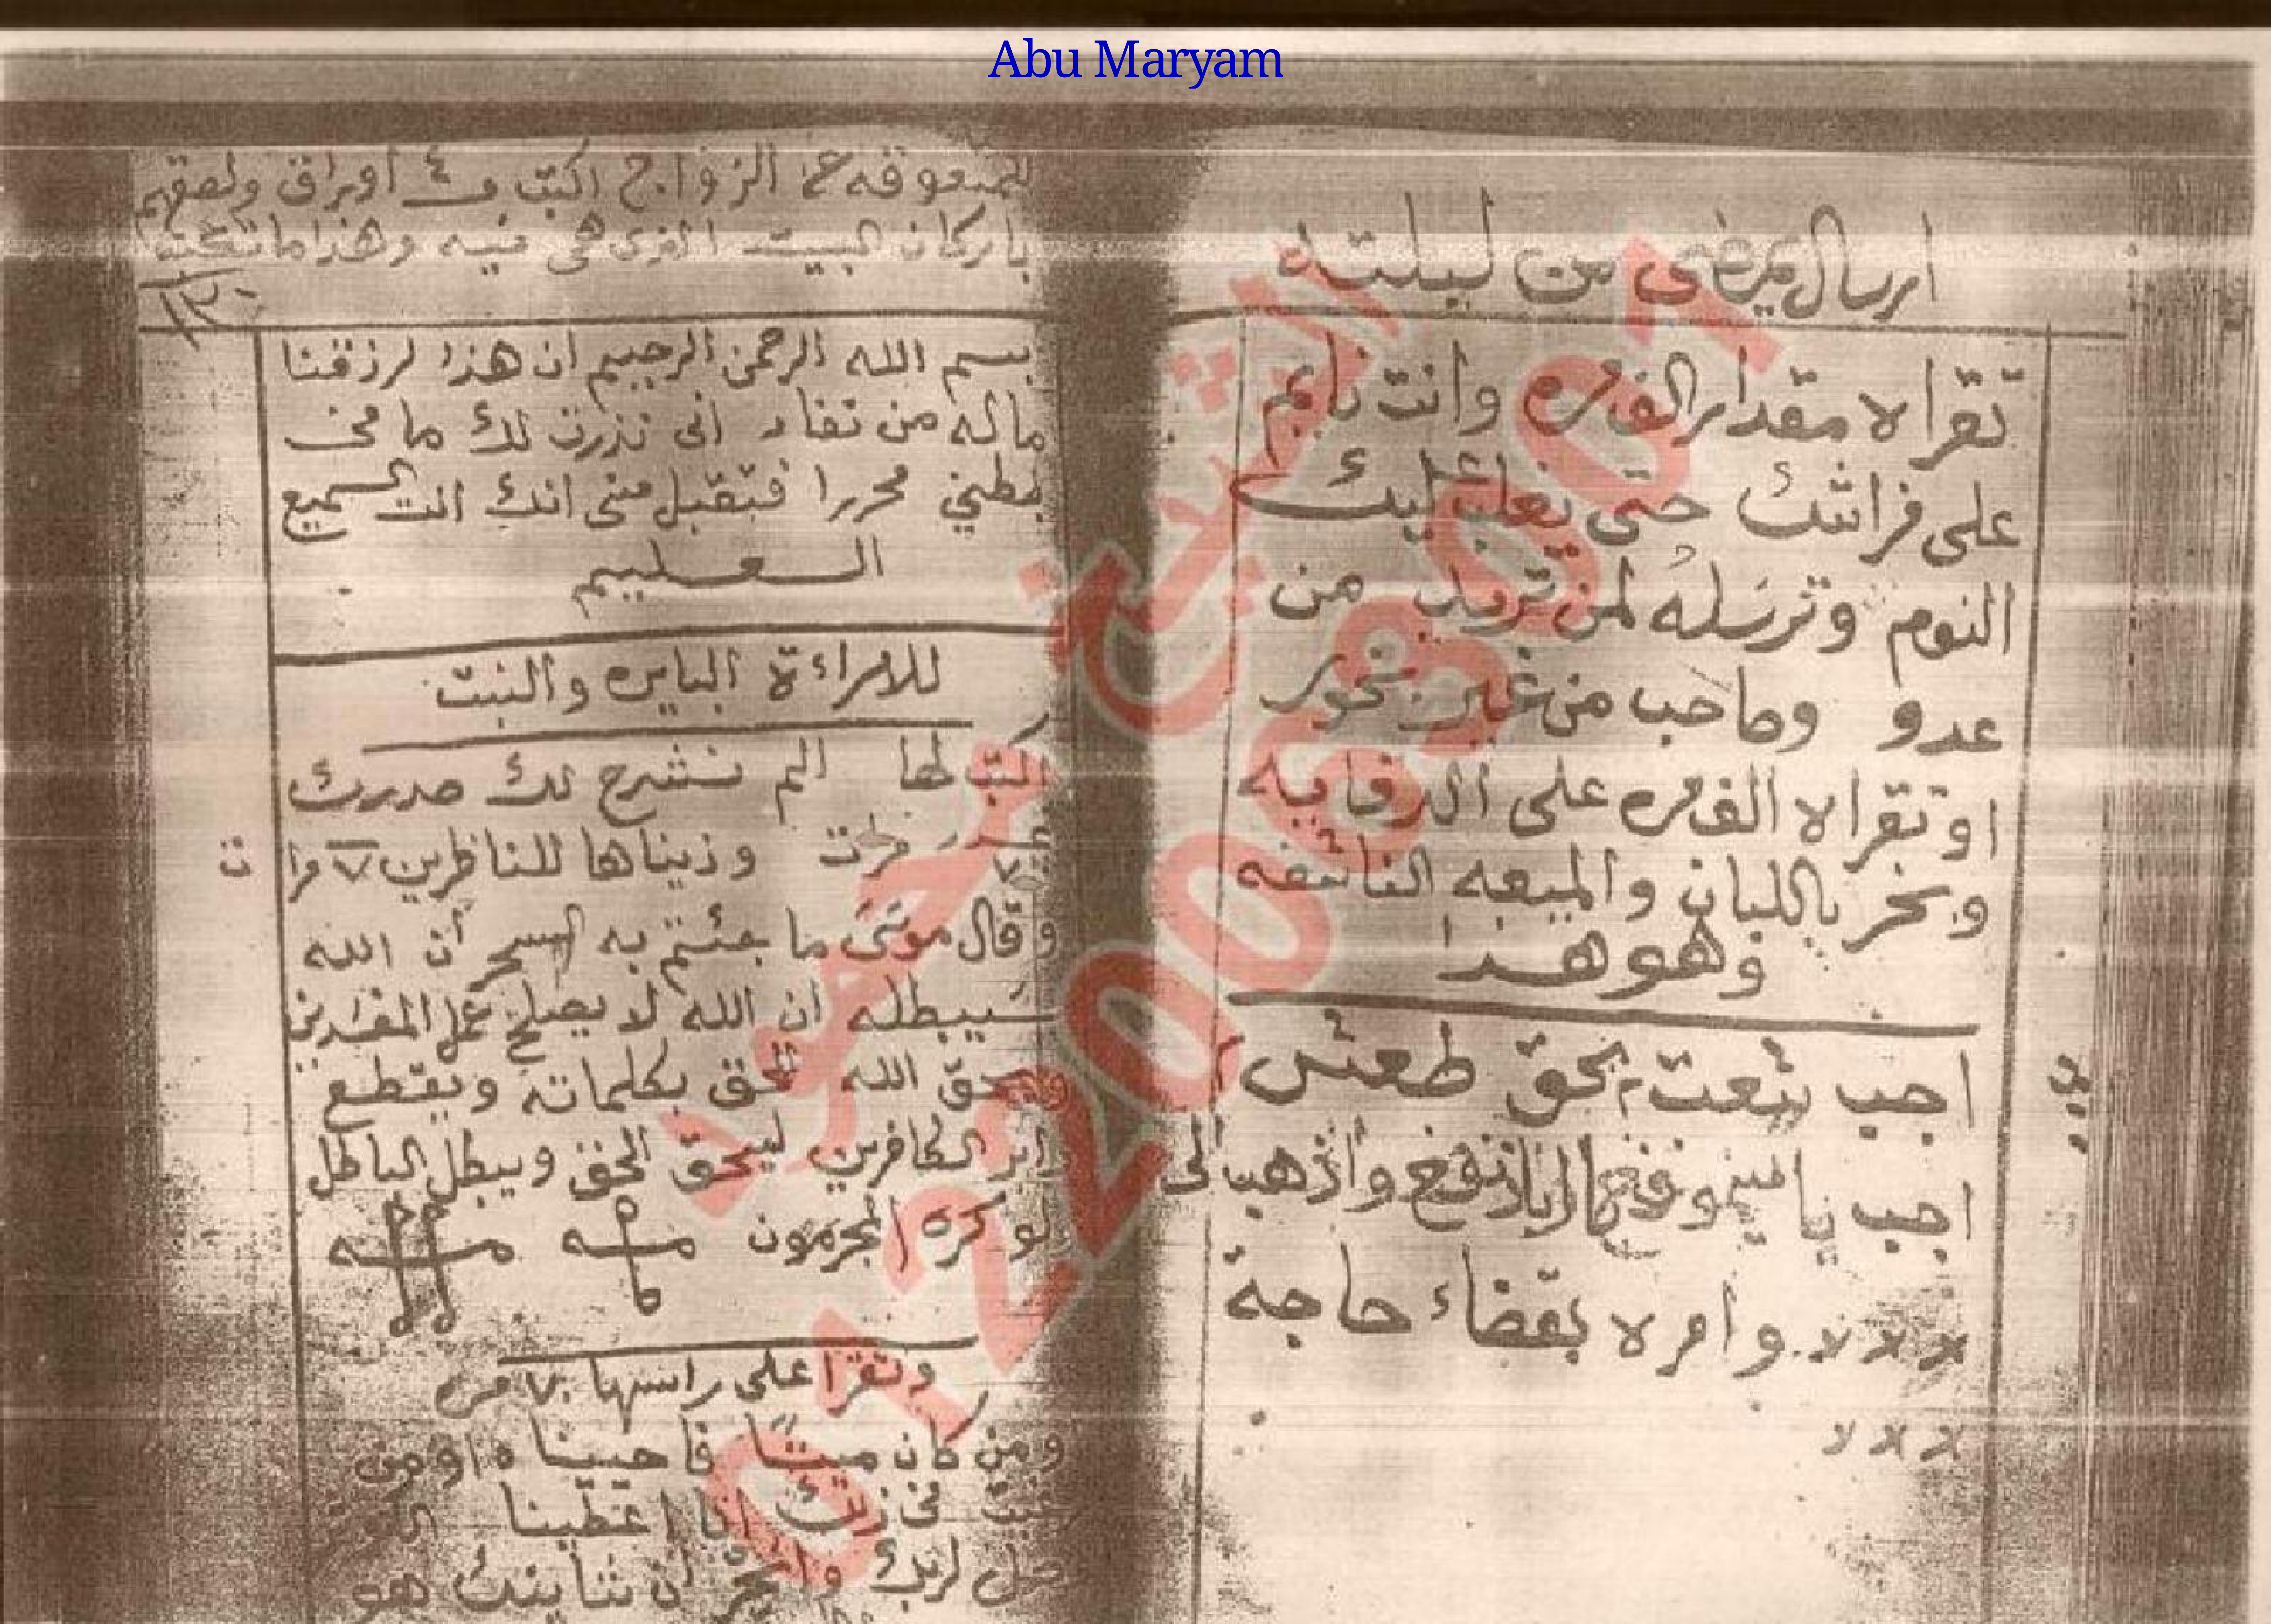 Abu Maryam
ارسال يمضى من ليلته
تقراه مقدار الف مره وانت نايم
على فراشك حتى يغلب عليك
النوم وترسله لمن تريد من
عدو وصاحب من غير بخور
او تقراه الف مره على الدفايه
وبخر باللبان والميعه الناشفه
وهو هذا
اجب بحق طعش
اجب يا واذهب الى
وامره بقضاء حاجة
للمتعوقه عن الزواج اكتب فى ٤ اوراق ولصقهم
باركان البيت الذى هى فيه وهذا ما تكتب
بسم الله الرحمن الرحيم ان هذا لرزقنا
ماله من نفاد انى نذرت لك ما فى
بطني محررا فتقبل منى انك انت السميع
العليم
للامراءة البايره والبنت
اكتب لها الم نشرح لك صدرك
وزيناها للناظرين ٧ مرات
وقال موسى ما جئتم به السحر ان الله
سيبطله ان الله لا يصلح عمل المفسدين
ويحق الله الحق بكلماته ويقطع
دابر الكافرين ليحق الحق ويبطل الباطل
لو كره المجرمون
وتقرا على راسها ٧ مره
ومن كان ميتا فاحييناه
انا اعطينا
لربك وانحر ان شانئك هو
01220068301